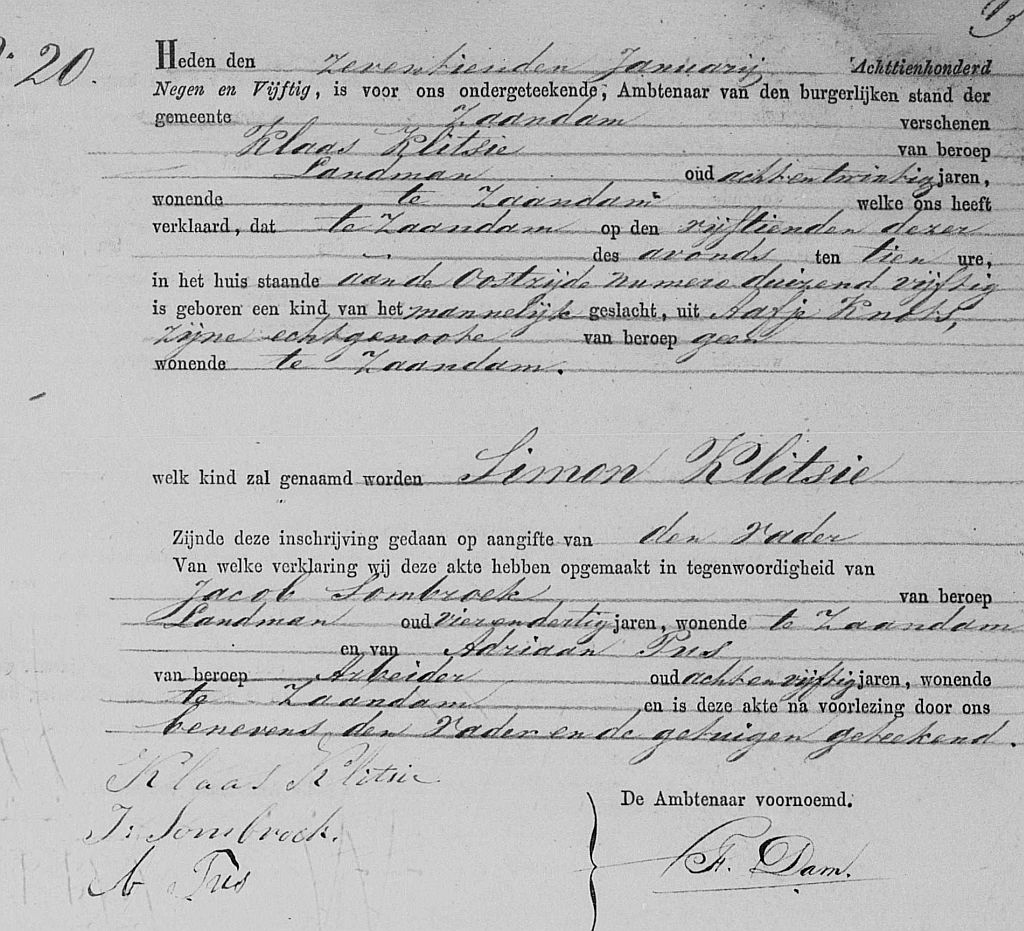 13
N. 20.
Heden den zeventienden Januarij Achttienhonderd
Negen en Vijftig, is voor ons ondergeteekende, Ambtenaar van den burgerlijken stand der
gemeente Zaandam verschenen
Klaas Klitsie van beroep
Landman oud achtentwintig jaren,
wonende te Zaandam welke ons heeft
verklaard, dat te Zaandam op den vijftienden dezer
des avonds ten tien ure,
in het huis staande aan de Oostzijde numero duizend vijftig
is geboren een kind van het mannelijk geslacht, uit Aafje Knots,
zijne echtgenoote van beroep geen
wonende te Zaandam.
welk kind zal genaamd worden Simon Klitsie
Zijnde deze inschrijving gedaan op aangifte van den vader
Van welke verklaring wij deze akte hebben opgemaakt in tegenwoordigheid van
Jacob Sombroek van beroep
Landman oud vierendertig jaren, wonende te Zaandam
en van Adriaan Pus
van beroep Arbeider oud achtenvijftig jaren, wonende
te Zaandam en is deze akte na voorlezing door ons
benevens den vader en de getuigen geteekend.
Klaas Klitsie
J: Sombroek.
A Pus
De Ambtenaar voornoemd.
F. Dam.